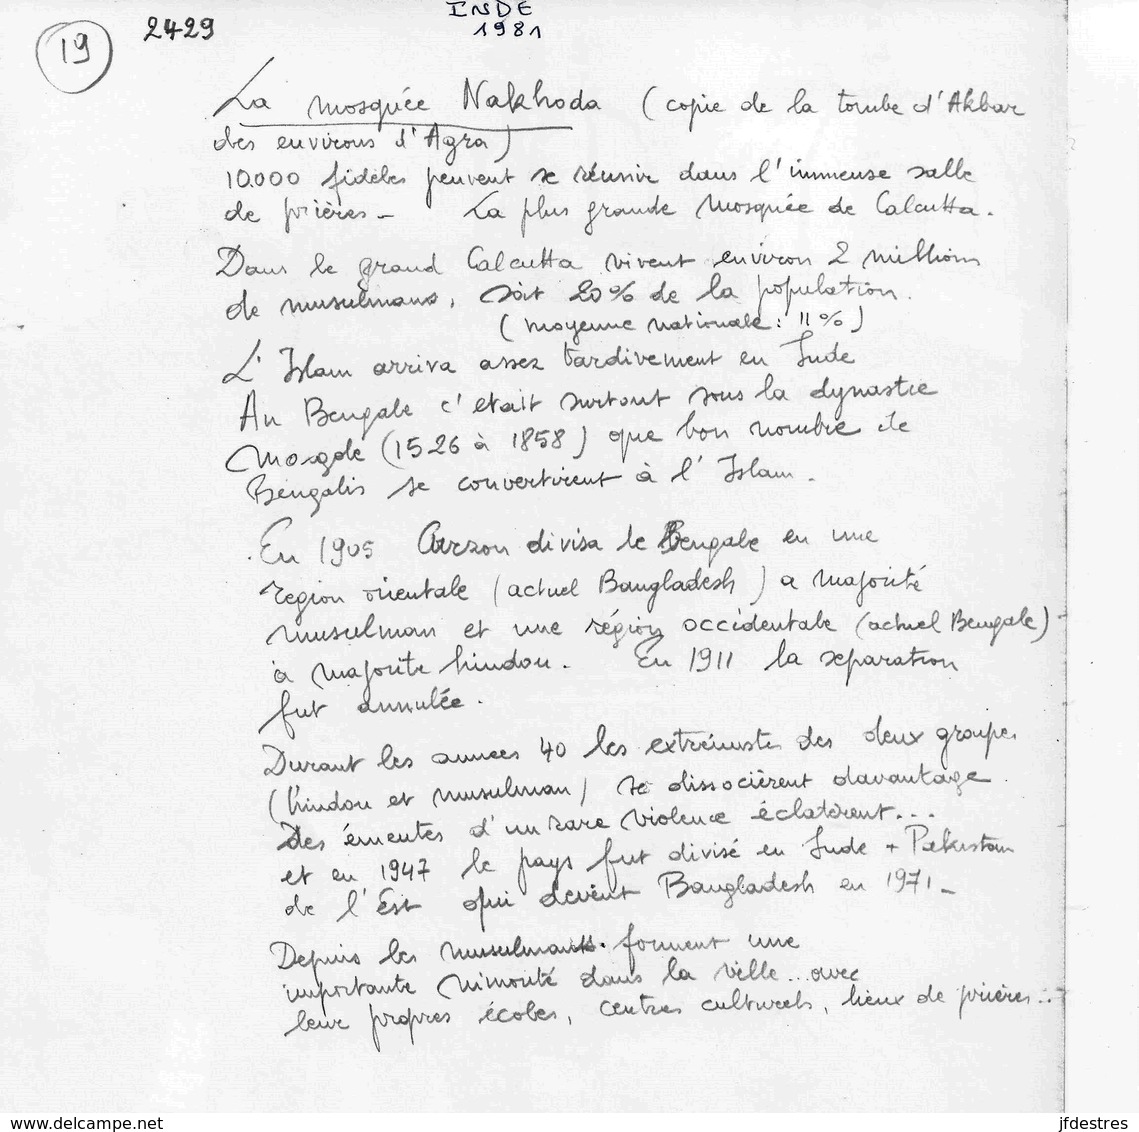 19
2429
INDE
1981
La mosquée Nakhoda (copie de la tombe d'Akbar
des environs d'Agra)
10.000 fidèles peuvent se réunir dans l'immense salle
de prières - La plus grande Mosquée de Calcutta.
Dans le grand Calcutta vivent environ 2 millions
de musulmans, soit 20% de la population.
(moyenne nationale : 11%)
L'Islam arriva assez tardivement en Inde
Au Bengale c'était surtout sous la dynastie
Mogole (1526 à 1858) que bon nombre de
Bengalis se convertirent à l'Islam.
En 1905 Curzon divisa le Bengale en une
region orientale (actuel Bangladesh) a majorité
musulman et une région occidentale (actuel Bengale)
à majorite hindou. En 1911 la separation
fut annulée.
Durant les annees 40 les extrémistes des deux groupes
(hindou et musulman) se dissocièrent davantage
Des émeutes d'un rare violence éclatèrent...
et en 1947 le pays fut divisé en Inde + Pakistan
de l'Est qui devint Bangladesh en 1971 -
Depuis les musulmans forment une
importante minorité dans la ville... avec
leur propres écoles, centres culturels, lieux de prières...
www.delcampe.net
jfdestres